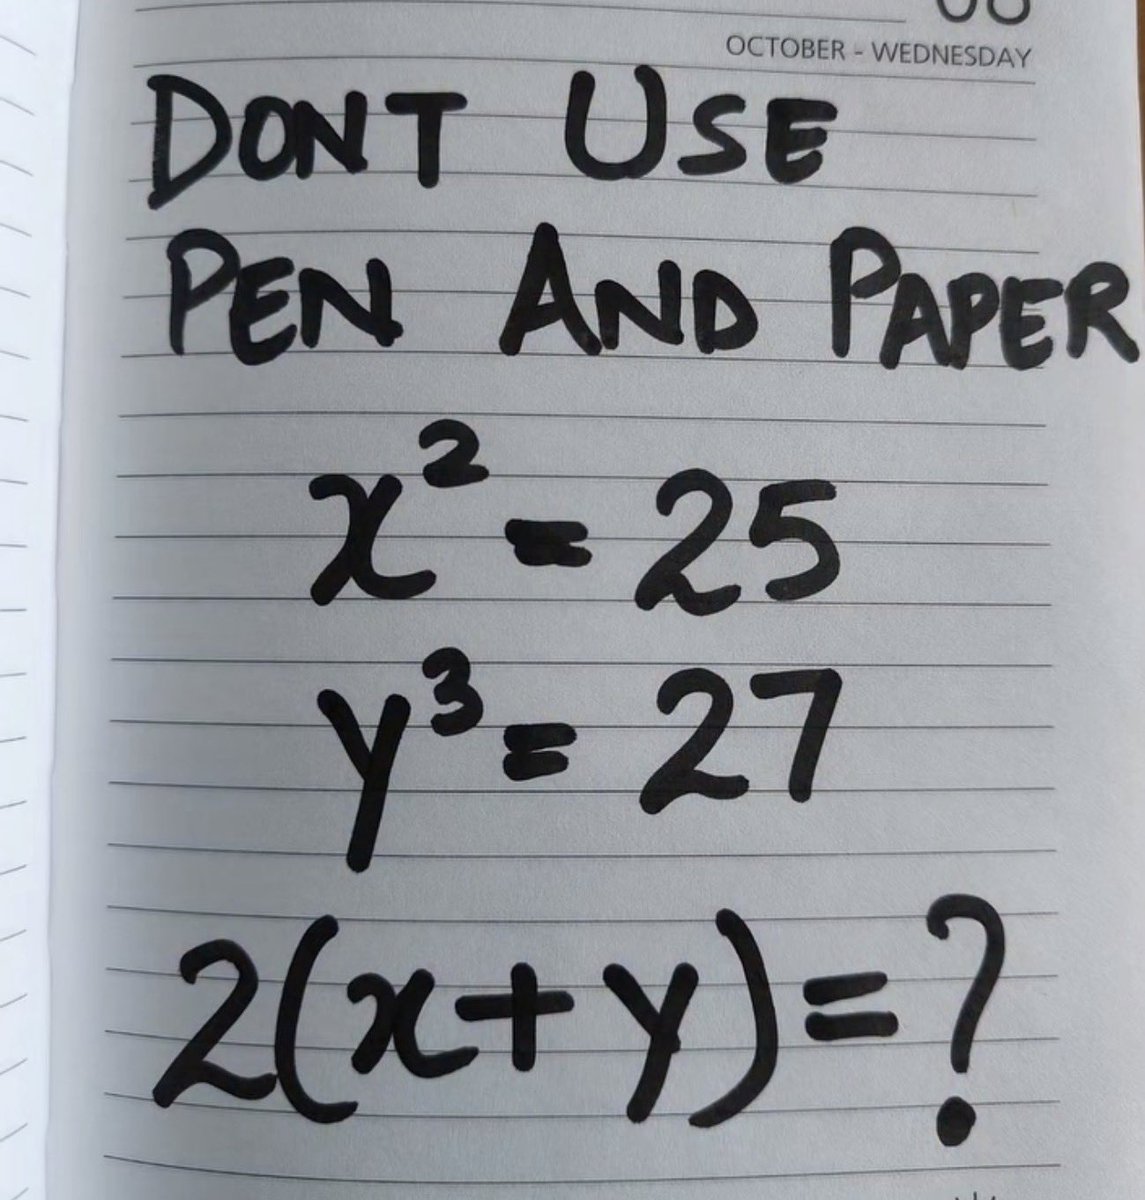 OCTOBER - WEDNESDAY
DONT USE
PEN AND PAPER
x² = 25
y³ = 27
2(x+y)=?